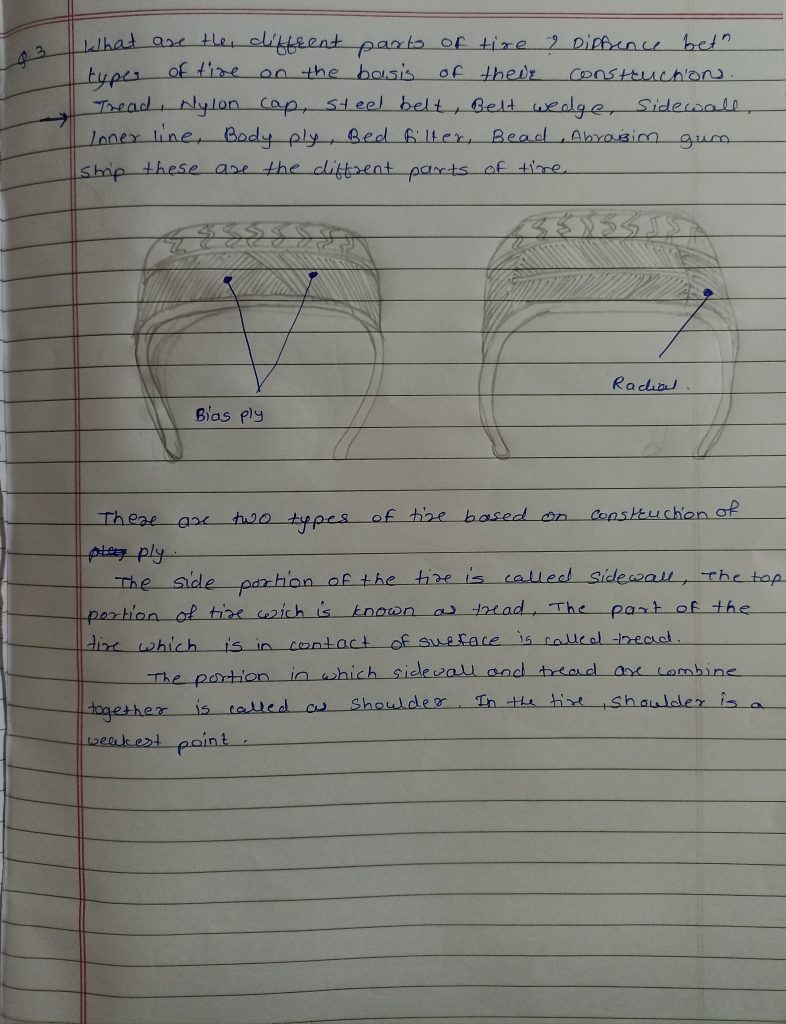 Q 3 What are the, different parts of tire ? Diffrence betn
types of tire on the basis of their constructions.
→ Tread, Nylon cap, steel belt, Belt wedge, Sidewall,
Inner line, Body ply, Bed filter, Bead, Abrasim gum
strip these are the diffrent parts of tire.
Bias ply
Radial.
There are two types of tire based on construction of
ply.
The side portion of the tire is called sidewall, The top
portion of tire wich is known as tread, The part of the
tire which is in contact of surface is called tread.
The portion in which sidewall and tread are combine
together is called as shoulder. In the tire, shoulder is a
weakest point.